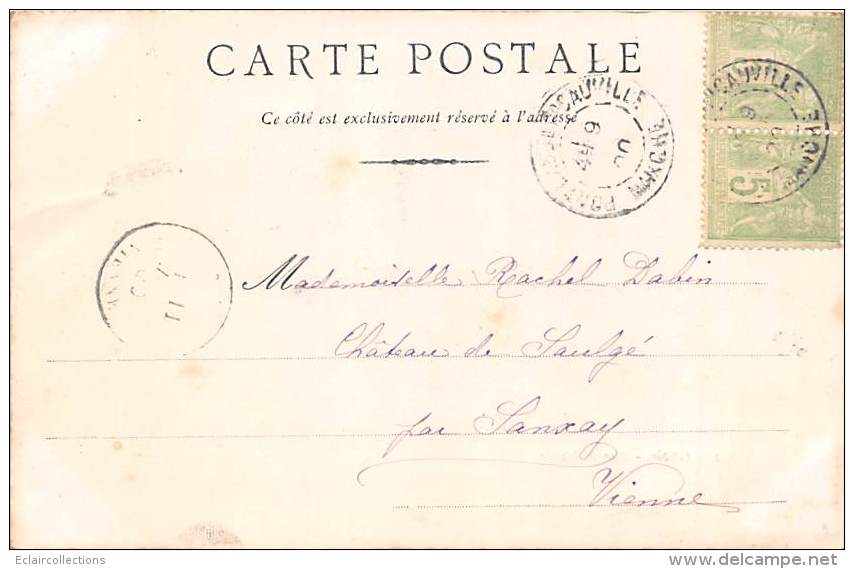 CARTE POSTALE
Ce côté est exclusivement réservé à l'adresse
Mademoiselle Rachel Dabin
Château de Saulgé
par Sanxay
Vienne
5
Eclaircollections
delcampe.net